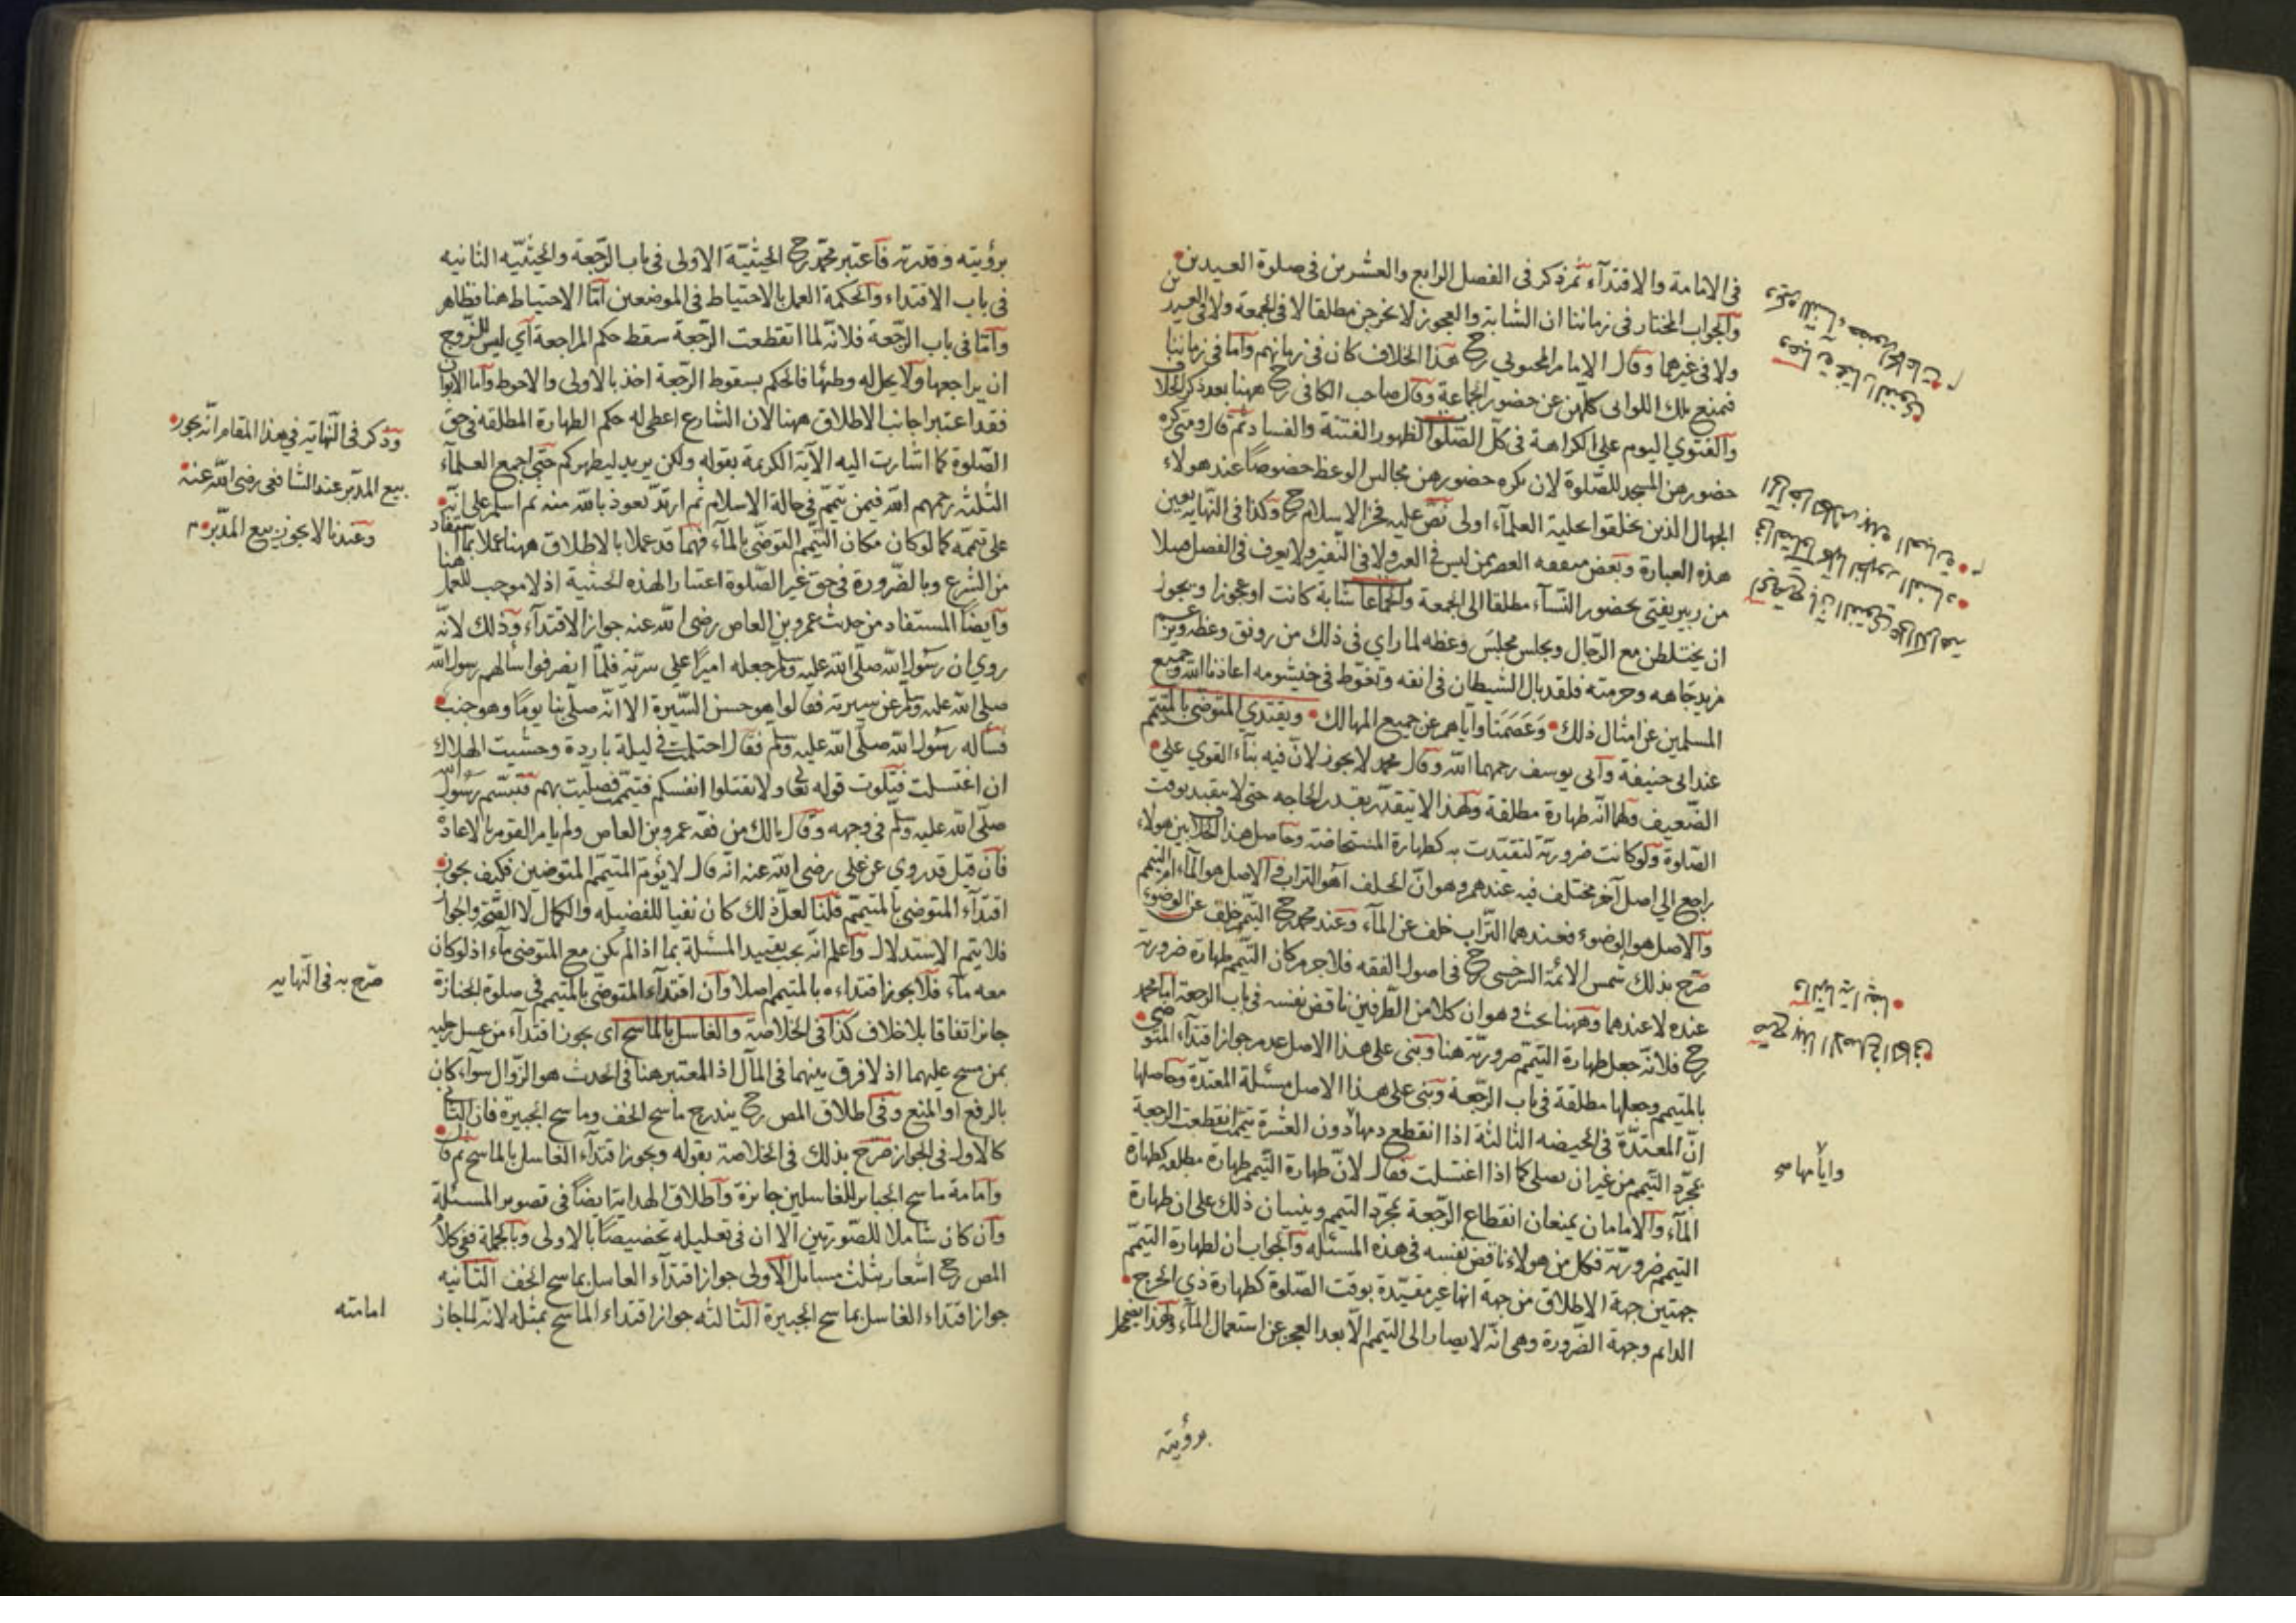 في الامامة والاقتدآء ثم ذكر في الفصل الرابع والعشرين في صلوة العيدين
والجواب المختار في زماننا ان الشابة والعجوز لا يخرجن مطلقا لا في الجمعة ولا في العيدين
ولا في غيرهما وقال الامام المحبوبي رح هذا الخلاف كان في زمانهم واما في زماننا
فتمنع تلك اللواتي كلهن عن حضور الجماعة وقال صاحب الكافي رح ههنا بعد ذكر الخلاف
والفتوي اليوم علي الكراهة في كل الصلوات لظهور الفتنة والفساد ثم قال ومتي كره
حضورهن المسجد للصلوة لان يكره حضورهن مجالس الوعظ خصوصًا عند هولاء
الجهال الذين تخلقوا بحلية العلمآء اولى نص عليه فخر الاسلام رح وكذا في النهاية بعين
هذه العبارة وبعض متفقه العصر ممن ليس في العير ولا في النفير ولا يعرف في الفصل قبيلا
من دبير يفتي بحضور النسآء مطلقا الى الجمعة والجماعات شابة كانت او عجوزا ويجوز
ان يختلطن مع الرجال ويجلس مجلس وعظه لما راي في ذلك من رونق وعظه
مزيد جاهه وحرمته فلقد بال الشيطان في انفه وتغوط في خيشومه اعاذنا الله وجميع
المسلمين عن امثال ذلك وعصمنا واياهم عن جميع المهالك ويقتدي المتوضي بالمتيمم
عند ابي حنيفة وابي يوسف رحمهما الله وقال محمد لا يجوز لان فيه بنآء القوي علي
الضعيف ولهما انه طهارة مطلقة ولهذا لا يتقدر بقدر الحاجه حتى لا يتقيد بوقت
الصلوة ولو كانت ضرورية لتقيدت به كطهارة المستحاضة وحاصل هذا الخلاف بين هولاء
راجع الي اصل آخر مختلف فيه عندهم وهو ان الخلف أهو التراب فالاصل هو المآء ام التيمم
والاصل هو الوضوء فعندهما التراب خلف عن المآء وعند محمد رح التيمم خلف عن الوضوء
صرح بذلك شمس الائمة السرخسي رح في اصول الفقه فلا جرم كان التيمم طهارة ضرورية
عنده لا عندهما وههنا بحث وهو ان كلا من الطرفين ناقض نفسه في باب الرجعة اما محمد
رح فلانه جعل طهارة التيمم ضرورية هنا وبنى على هذا الاصل عدم جواز اقتدآء المتوضي
بالمتيمم وجعلها مطلقة في باب الرجعة وبنى على هذا الاصل مسئلة المعتدة وحاصلها
ان المعتدة في الحيضه الثالثة اذا انقطع دمها دون العشرة تيممت انقطعت الرجعة
بمجرد التيمم من غير ان تصلي كما اذا اغتسلت فقال لان طهارة التيمم طهارة مطلقه كطهارة
المآء والامامان يمنعان انقطاع الرجعة بمجرد التيمم ويبنيان ذلك على ان طهارة
التيمم ضرورية فكل من هولاء ناقض نفسه في هذه المسئله والجواب ان لطهارة التيمم
جهتين جهة الاطلاق من جهة انها غير مقيدة بوقت الصلوة كطهارة ذي الجرح
الدايم وجهة الضرورة وهي انه لا يصار الى التيمم الا بعد العجز عن استعمال المآء ولهذا يضمحل
برؤيته
وايامها صح
برؤيته وقدرته فاعتبر محمد رح الحيثية الاولى في باب الرجعة والحيثية الثانيه
في باب الاقتداء والحكمة العمل بالاحتياط في الموضعين اما الاحتياط هنا فظاهر
واما في باب الرجعة فلانه لما انقطعت الرجعة سقط حكم المراجعة اي ليس للزوج
ان يراجعها ولا يحل له وطئها فالحكم بسقوط الرجعة اخذ بالاولى والاحوط واما الابوان
فقد اعتبرا جانب الاطلاق ههنا لان الشارع اعطى له حكم الطهارة المطلقه في حق
الصلوة كما اشارت اليه الآية الكريمة بقوله ولكن يريد ليطهركم حتى اجمع العلمآء
الثلثة رحمهم الله فيمن تيمم في حالة الاسلام ثم ارتد نعوذ بالله منه ثم اسلم على انه
على تيممه كما لو كان مكان التيمم التوضي بالمآء فهما قد عملا بالاطلاق ههنا عملا بما استفاد
من الشرع وبالضرورة في حق غير الصلوة اعتبارا لهذه الحيثية اذ لا موجب للعمل هنا
وايضًا المستفاد من حديث عمرو بن العاص رضي الله عنه جواز الاقتدآء وذلك لانه
روي ان رسول الله صلى الله عليه وسلم جعله اميرًا علي سرية فلما انصرفوا سألهم رسول الله
صلى الله عليه وسلم عن سيرته فقالوا هو حسن السيرة الا انه صلى بنا يومًا وهو جنب
فسأله رسول الله صلى الله عليه وسلم فقال احتلمت في ليلة باردة وخشيت الهلاك
ان اغتسلت فتلوت قوله تعالى ولا تقتلوا انفسكم فتيممت فصليت بهم فتبسم رسول الله
صلى الله عليه وسلم في وجهه وقال يا لك من فقه عمرو بن العاص ولم يامر القوم بالاعادة
فان قيل قد روي عن علي رضى الله عنه انه قال لا يؤم المتيمم المتوضين فكيف يجوز
اقتدآء المتوضي بالمتيمم قلنا لعل ذلك كان نفيا للفضيله والكمال لا الصحة والجواز
فلا يتم الاستدلال واعلم انه يجب تقييد المسئلة بما اذا لم يكن مع المتوضي مآء اذ لو كان
معه مآء فلا يجوز اقتداءه بالمتيمم اصلا وان اقتدآء المتوضي بالمتيمم في صلوة الجنازة
جائز اتفاقا بلا خلاف كذا في الخلاصة والغاسل بالماسح اي يجوز اقتدآء من غسل رجليه
بمن مسح عليهما اذ لا فرق بينهما في المآل اذ المعتبر هنا في الحدث هو الزوال سوآء كان
بالرفع او المنع وفي اطلاق المص رح يندرج ماسح الخف وماسح الجبيرة فان الثاني
كالاول في الجواز صرح بذلك في الخلاصة بقوله ويجوز اقتدآء الغاسل بالماسح ثم قال
وامامة ماسح الجباير للغاسلين جايزة واطلاق الهداية ايضًا في تصوير المسئلة
وان كان شاملا للصورتين الا ان في تعليله تخصيصًا بالاولى وبالجملة ففي كلام
المص رح اشعار بثلث مسايل الاولى جواز اقتدآء الغاسل بماسح الخف الثانيه
جواز اقتداء الغاسل بماسح الجبيرة الثالثه جواز اقتداء الماسح بمثله لانه لما جاز
وذكر في النهاية في هذا المقام انه يجوز
بيع المدبر عند الشافعى رضى الله عنه
وعندنا لا يجوز بيع المدبر م
صرح به في النهايه
امامته